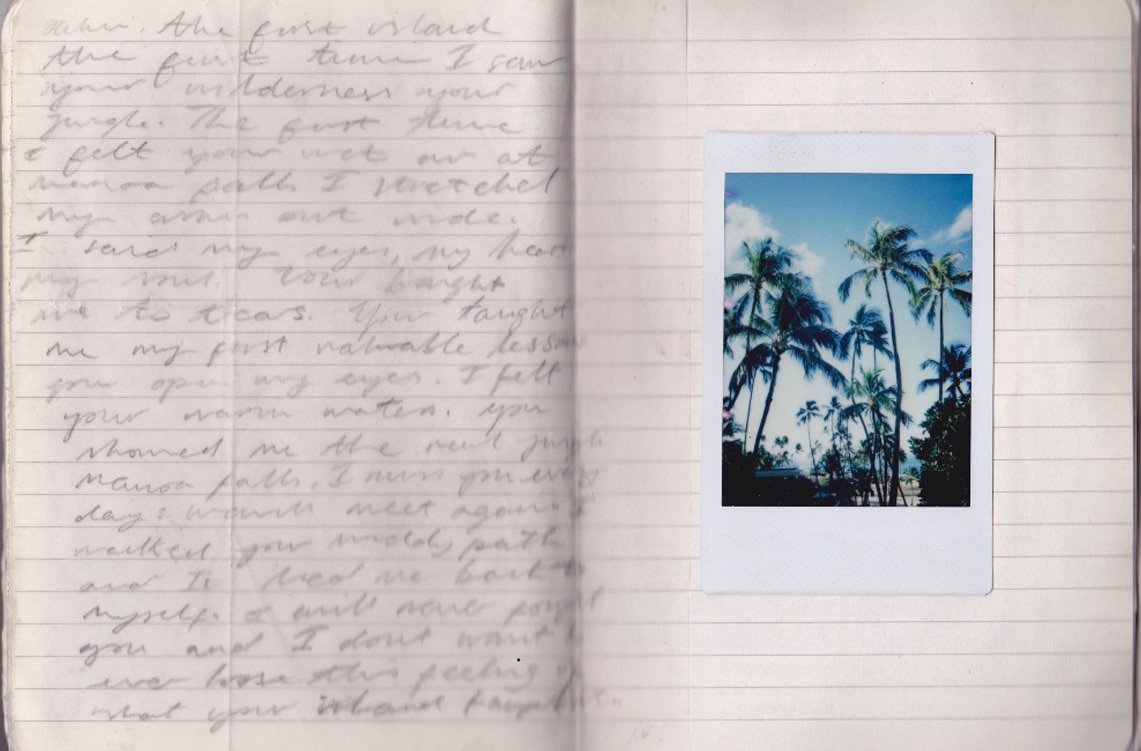 The first island
the first time I saw
your wilderness your
jungle. The first time
I felt your wet air at
manoa falls I stretched
my arms out wide.
I said my eyes, my heart
my soul. You bought
me to tears. You taught
me my first valuable lesson
you open my eyes. I felt
your warm waters. you
showed me the real jungle
Manoa falls. I miss you every
day meet again
walked your muddy path
and It lead me back to
myself. I will never forget
you and I dont want to
ever loose this feeling of
what your island taught me.